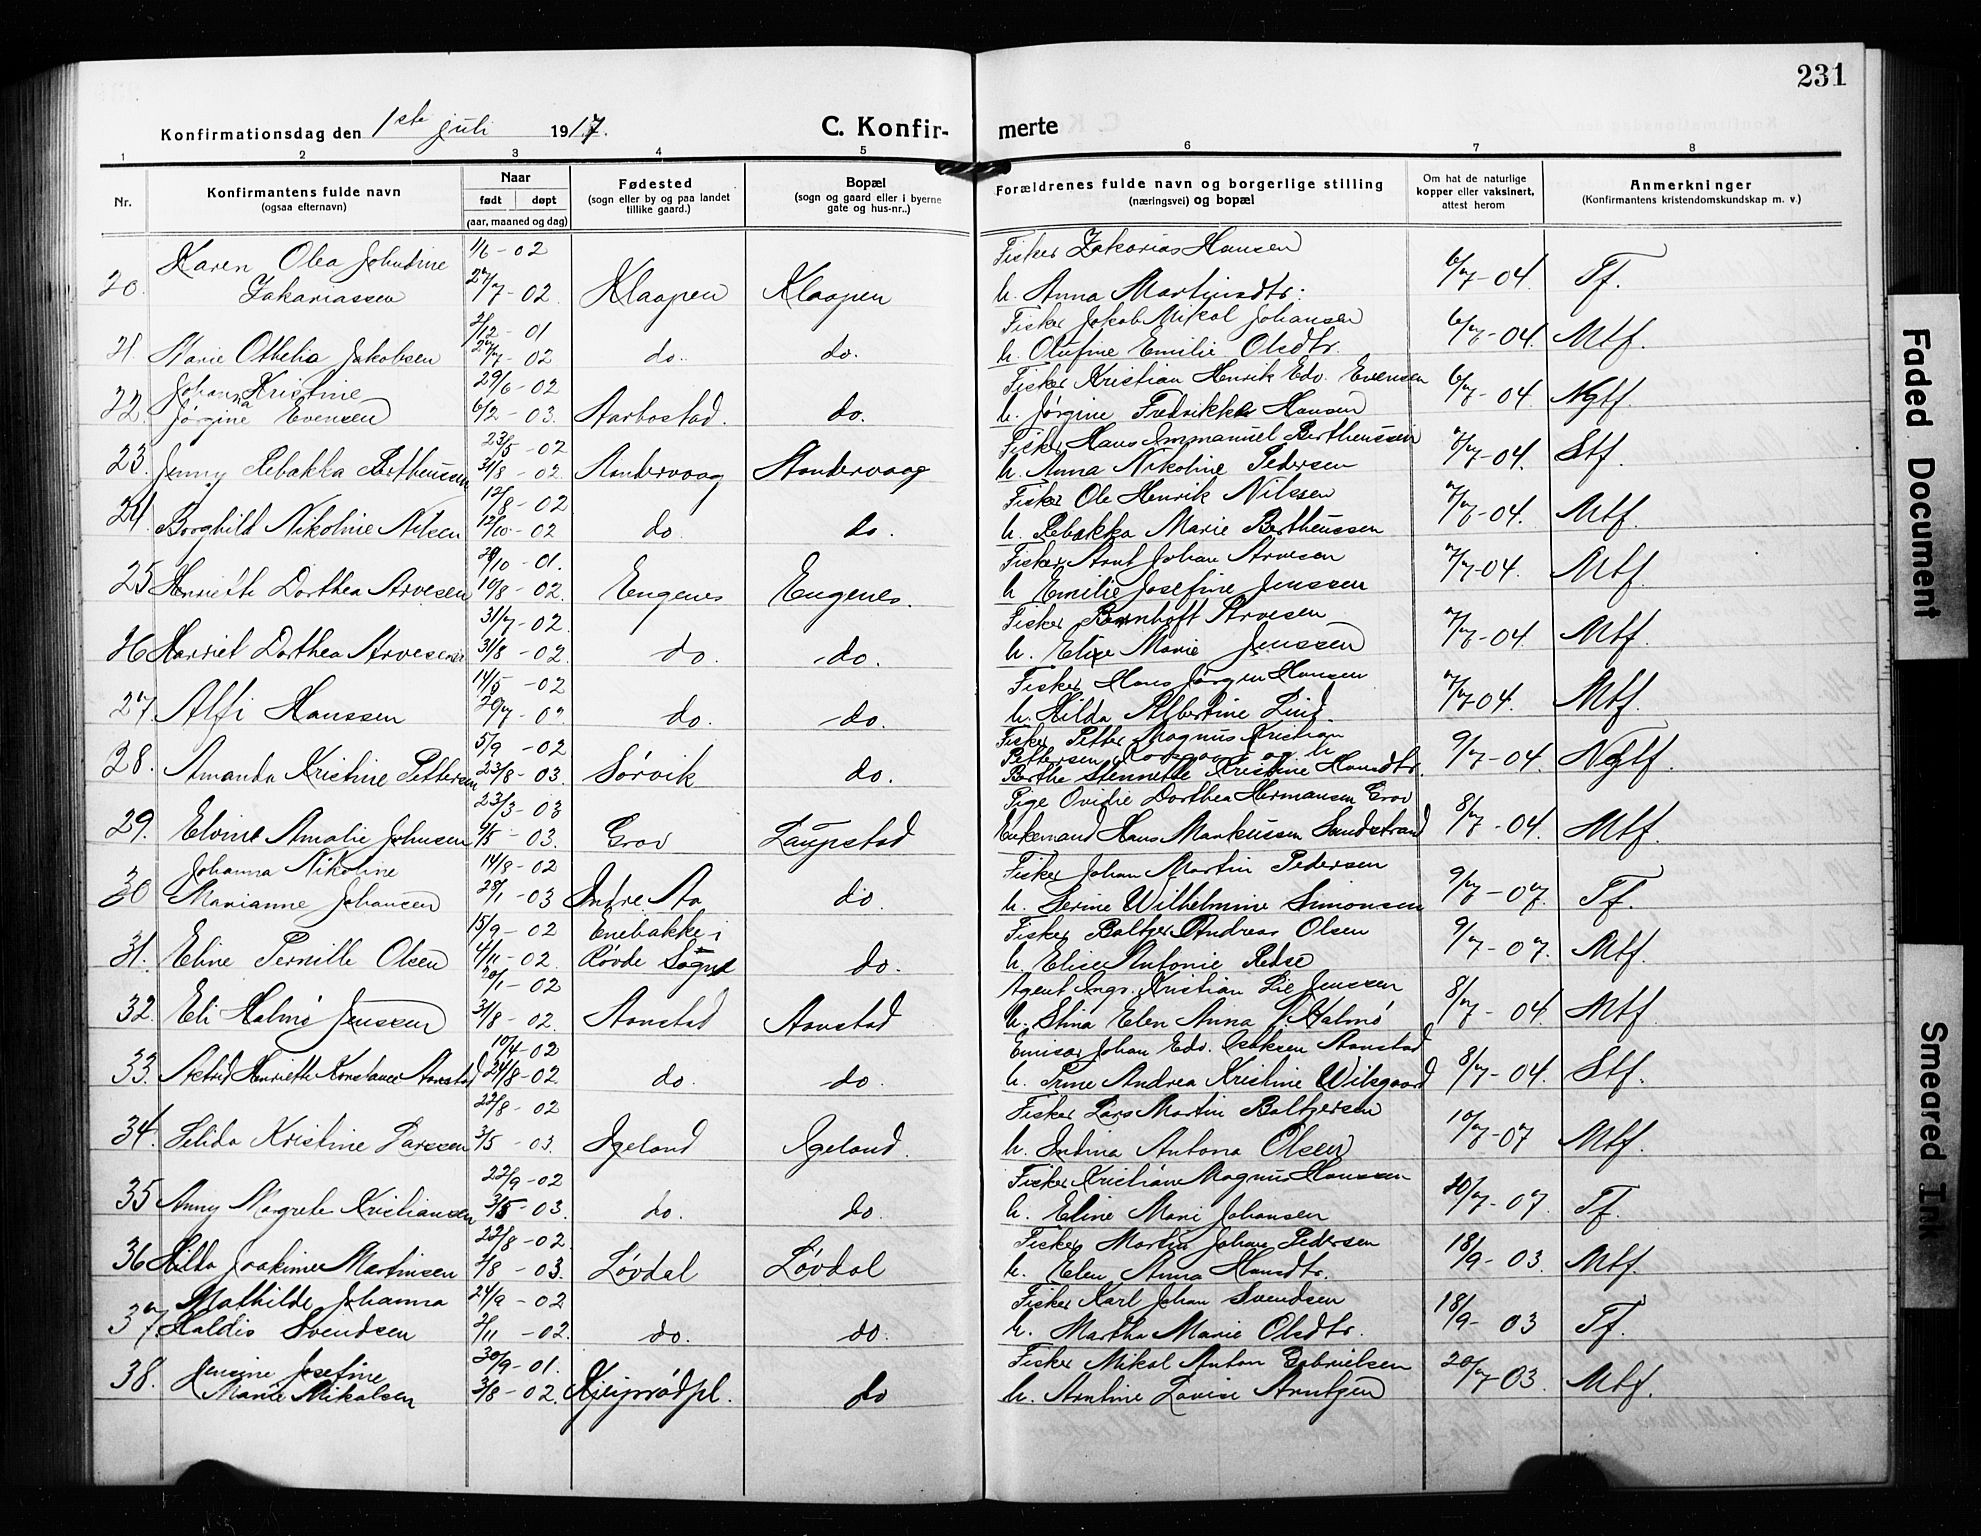 231
Konfirmationsdag den 1ste juli 1917. C. Konfir- merte
1 2 3 4 5 6 7 8
Nr. Konfirmantens fulde navn (ogsaa efternavn) Naar født døpt (aar, maaned og dag) Fødested (sogn eller by og paa landet tillike gaard.) Bopæl (sogn og gaard eller i byerne gate og hus-nr..) Forældrenes fulde navn og borgerlige stilling (næringsvei) og bopæl Om hat de naturlige kopper eller vaksinert, attest herom Anmerkninger (Konfirmantens kristendomskundskap m. v.)
Karen Olea Johndine 1/6-02 Fisker Zakarias Hansen
20. Zakariassen 27/7-02 Klaapen Klaapen h. Anna Martinsdtr: 6/7-04. Tf.
2/12-01 Fisker Jakob Mikal Johansen
21. Marie Othelia Jakobsen 27/7-02 do. do. h. Olufine Emilie Olsdtr. 6/7-04. Mtf.
Johanna Kristine 29/6-02 Fisker Kristian Henrik Edv. Evensen
22. Jørgine Evensen 6/2-03. Aarbostad. do. h. Jørgine Fredrikke Hansen 6/7-04 Ngtf.
23/5-02 Fisker Hans Immanuel Bertheussen
23. Jenny Rebakka Bertheussen 31/8-02. Aandervaag Aandervaag h. Anna Nikoline Pedersen 7/7-04. Stf.
12/8-02 Fisker Ole Henrik Nilsen
24. Borghild Nikoline Nilsen 12/10-02 do do. h. Rebakka Marie Bertheussen 7/7-04. Mtf.
29/10-01. Fisker Arnt Johan Arvesen
25 Henriette Dorthea Arvesen 10/8-02. Engenes Engenes. h Emilie Josefine Jenssen 7/7-04. Mtf.
31/7-02. Fisker Bernhoft Arvesen
26 Harriet Dorthea Arvesen 31/8-02. do. do. h. Elise Marie Jenssen 7/7-04 Mtf.
14/5-02 Fisker Hans Jørgen Hansen
27. Alfi Hanssen 20/7-02 do. do. h. Hilda Albertine Lind. 7/7-04. Mtf.
5/9-02 Fisker Petter Magnus Kristian
28. Amanda Kristine Pettersen 23/8-03. Sørvik do. Pettersen og h
Berthe Stennette Kristine Hansdtr. 9/7-04. Ngtf.
23/3-03 Pige Ovidie Dorthea Hermansen Grov
29. Elvine Amalie Johnsen 9/5-03. Grov Laupstad Enkemand Hans Markussen Sandstrand 8/7-04. Mtf.
Johanna Nikoline 14/8-02 Fisker Johan Martin Pedersen
30 Marianne Johansen 28/1-03 Indre Aa do. h. Serine Wilhelmine Simonsen 9/7-07. Tf.
15/9-02 Enebakke i Fisker Baltzer Andreas Olsen
31. Eline Pernille Olsen 4/11-02. Røvde Sogn do. h Elise Antonie Redse 9/7-07. Mtf.
20/1-02 Agent Ings. Kristian Lie Jenssen
32. Eli Halmø Jenssen 31/8-02. Aanstad Aanstad h. Stina Elen Anna Halmø 8/7-04 Mtf.
10/4-02 Emisær Johan Edv. Isaksen Aanstad
33. Astrid Henriette Konstance Aanstad 24/8-02 do. do. h. Trine Andrea Kristine Wilsgaard 8/7-04. Stf.
22/8-02 Fisker Lars Martin Baltzersen
34. Selida Kristine Larssen 3/5-03. Igeland Igeland. h. Indina Antona Olsen 10/7-07 Mtf.
22/9-02 Fisker Kristian Magnus Hanssen
35 Anny Magrete Kristiansen 3/5-03. do. do. h. Eline Mari Johansen 10/7-07. Tf.
22/8-02. Fisker Martin Johan Pedersen
36 Hilda Joakime Martinsen 2/8-03. Løvdal Løvdal h. Elen Anna Hansdtr. 18/9-03. Mtf.
Mathilde Johanna 24/9-02 Fisker Karl Johan Svendsen
37. Haldis Svendsen 2/11-02. do. do. h. Martha Marie Olsdtr. 18/9-03 Tf.
Jensine Josefine 30/9-01. Fisker Mikal Anton Gabrielsen
38. Marie Mikalsen 3/8-02. do h. Arntine Lovise Arntzen 20/7-03. Mtf.
Faded Document
Smeared Ink